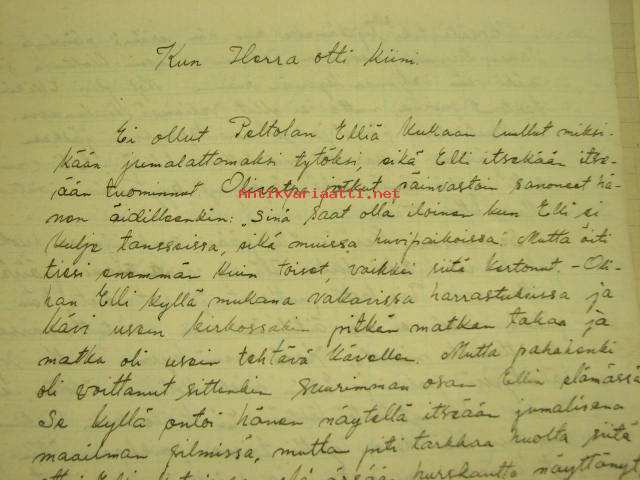 Kun Herra otti kiini.
Ei ollut Peltolan Elliä kukaan luullut miksi-
kään jumalattomaksi tytöksi, eikä Elli itsekään itse-
ään tuominnut. Olivatpa jotkut päinvastoin sanoneet hä-
nen äidilleenkin: "Sinä saat olla iloinen kun Elli ei
kulje tansseissa, eikä muissa huvipaikoissa". Mutta äiti
tiesi enemmän kuin toiset, vaikkei siitä kertonut. - Oli-
han Elli kyllä mukana vakavissa harrastuksissa ja
kävi usein kirkossakin pitkän matkan takaa ja
matka oli usein tehtävä kävellen. Mutta pahahenki
oli voittanut sittenkin suurimman osan Ellin elämässä
Se kyllä antoi hänen näytellä itseään jumalisena
maailman silmissä, mutta piti tarkkaa huolta siitä
että Elli hurskautta näyttänyt
Antikvariaatti.net